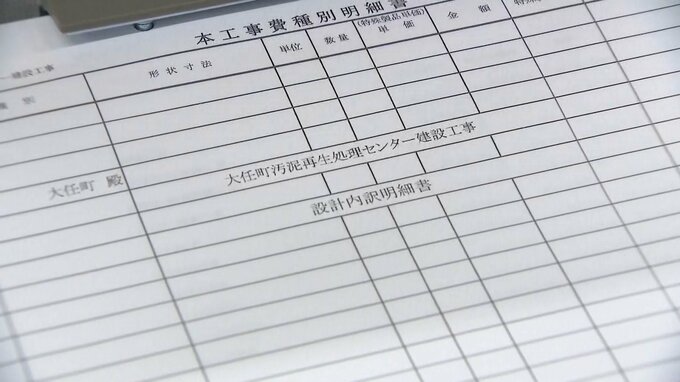 本工事費種別明細書
建設工事
種別
形状寸法
単位
数量
(特殊製品単価)
単価
金額
大任町 殿
大任町汚泥再生処理センター建設工事
設計内訳明細書